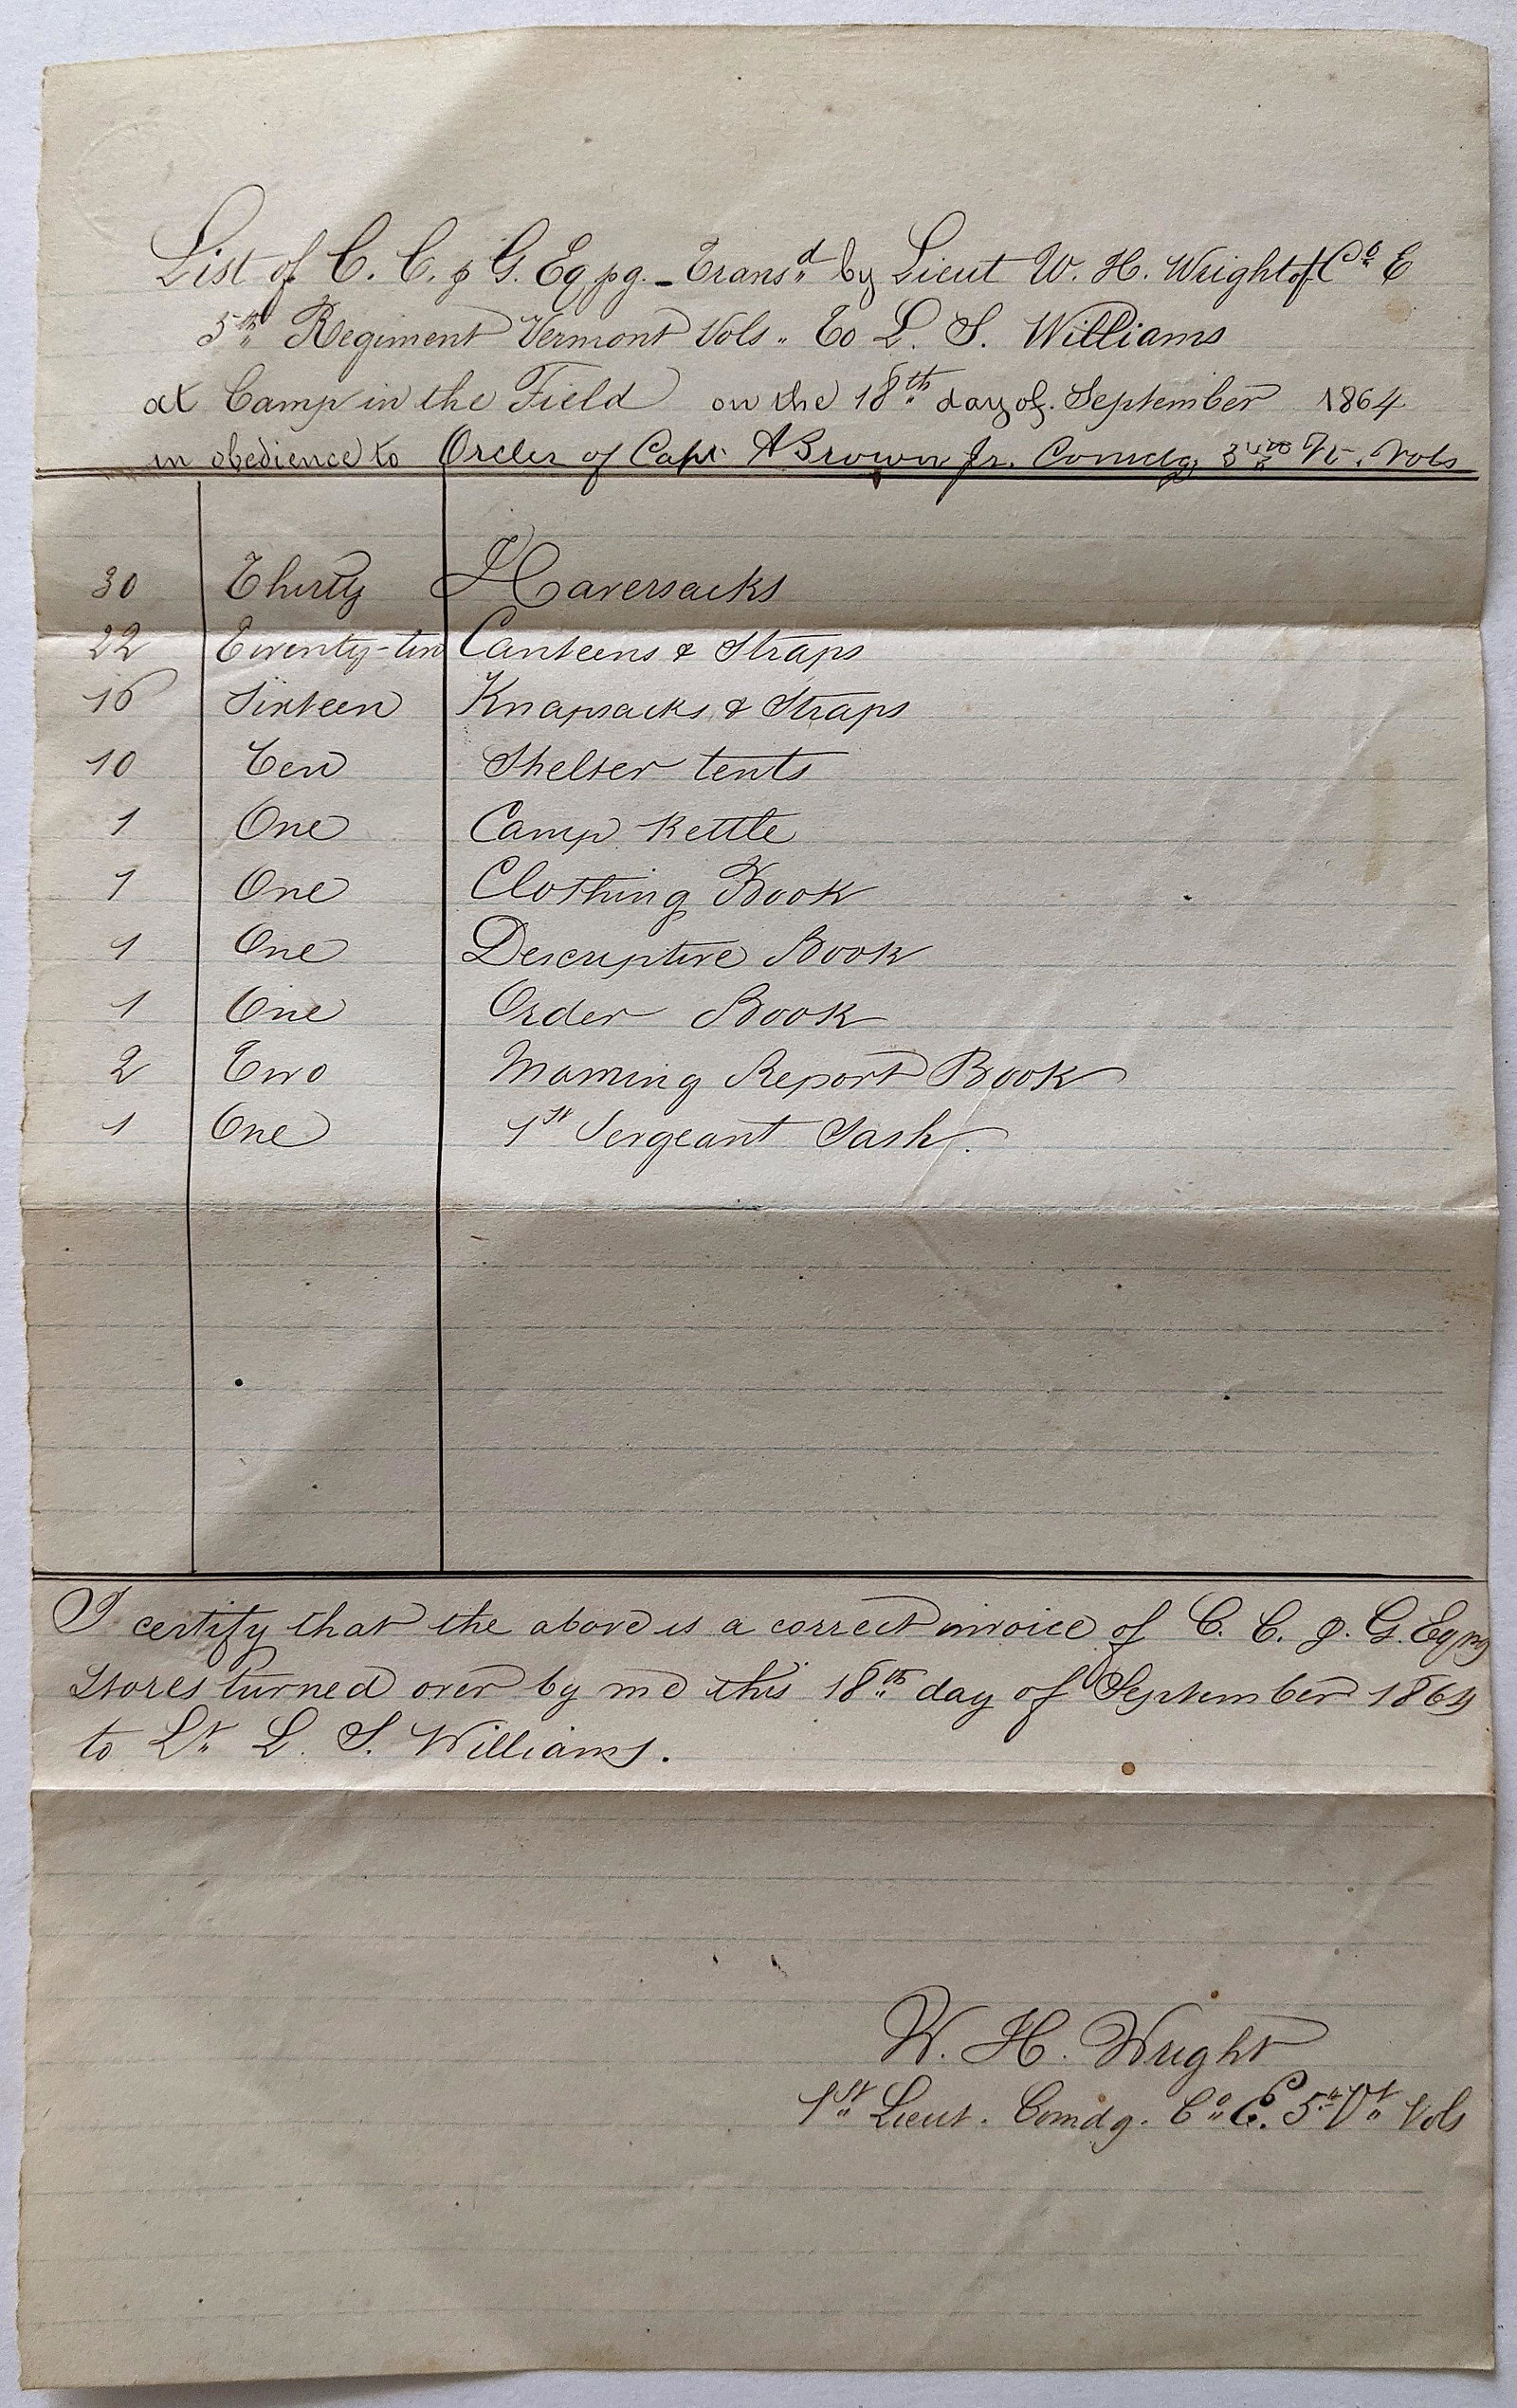 List of C. C. & G. Eq pg. - Transd by Lieut W. H. Wright of Co E
5th Regiment Vermont Vols. To L. S. Williams
at Camp in the Field on the 18th day of September 1864
in obedience to Order of Capt A Brown Jr. Comdg Vt. Vols
30 Thirty Haversacks
22 Twenty-two Canteens & Straps
16 Sixteen Knapsacks & Straps
10 Ten Shelter tents
1 One Camp Kettle
1 One Clothing Book
1 One Descriptive Book
1 One Order Book
2 Two Morning Report Book
1 One 1st Sergeant Sash.
I certify that the above is a correct invoice of C. C. & G. Eq pg
Stores turned over by me this 18th day of September 1864
to Lt L. S. Williams.
W. H. Wright
1st Lieut. Comdg. Co E. 5th Vt Vols